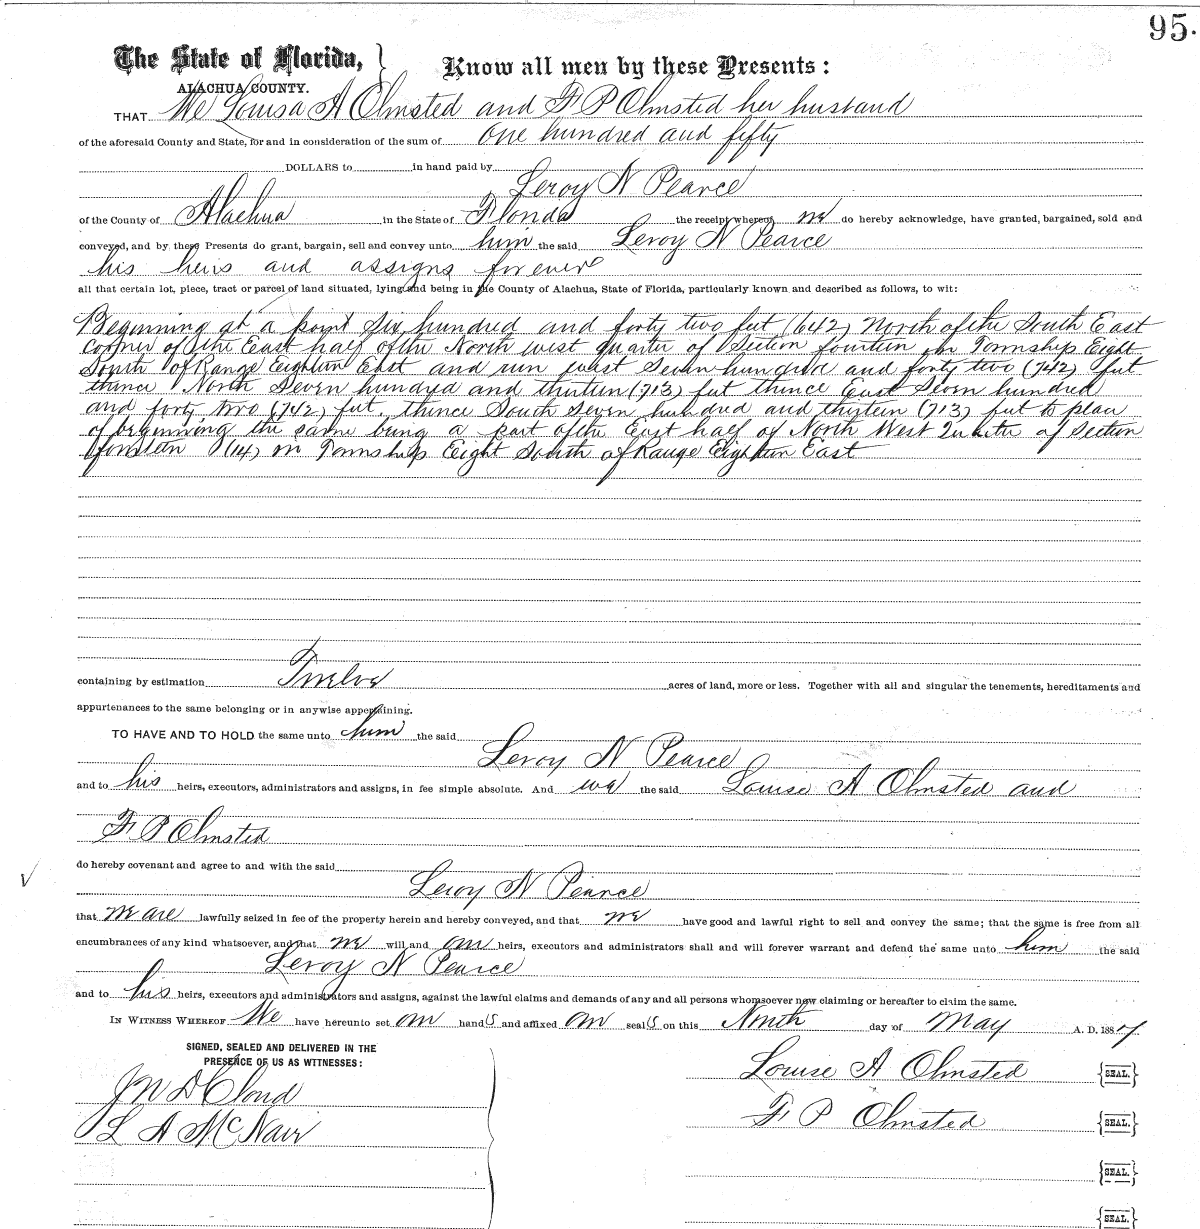 95.
The State of Florida, } Know all men by these Presents:
ALACHUA COUNTY.
THAT We Louisa A Olmsted and F P Olmsted her husband
of the aforesaid County and State, for and in consideration of the sum of one hundred and fifty
DOLLARS to in hand paid by
Leroy N Pearce
of the County of Alachua in the State of Florida the receipt whereof we do hereby acknowledge, have granted, bargained, sold and
conveyed, and by these Presents do grant, bargain, sell and convey unto him the said Leroy N Pearce
his heirs and assigns forever
all that certain lot, piece, tract or parcel of land situated, lying and being in the County of Alachua, State of Florida, particularly known and described as follows, to wit:
Beginning at a point Six hundred and forty two feet (642) North of the South East
corner of the East half of the North west quarter of Section fourteen in Township Eight
South of Range Eighteen East and run west Seven hundred and forty two (742) feet
thence North Seven hundred and thirteen (713) feet thence East Seven hundred
and forty two (742) feet, thence South seven hundred and thirteen (713) feet to place
of beginning the same being a part of the East half of North West Quarter of Section
fourteen (14) in Township Eight South of Range Eighteen East
containing by estimation Twelve acres of land, more or less. Together with all and singular the tenements, hereditaments and
appurtenances to the same belonging or in anywise appertaining.
TO HAVE AND TO HOLD the same unto him the said
Leroy N Pearce
and to his heirs, executors, administrators and assigns, in fee simple absolute. And we the said Louise A Olmsted and
F P Olmsted
do hereby covenant and agree to and with the said
Leroy N Pearce
that we are lawfully seized in fee of the property herein and hereby conveyed, and that we have good and lawful right to sell and convey the same; that the same is free from all
encumbrances of any kind whatsoever, and that we will and our heirs, executors and administrators shall and will forever warrant and defend the same unto him the said
Leroy N Pearce
and to his heirs, executors and administrators and assigns, against the lawful claims and demands of any and all persons whomsoever now claiming or hereafter to claim the same.
IN WITNESS WHEREOF We have hereunto set our hands and affixed our seals on this Ninth day of May A. D. 1887
SIGNED, SEALED AND DELIVERED IN THE
PRESENCE OF US AS WITNESSES:
Louise A Olmsted {SEAL.}
J N D Cloud
F. P Olmsted {SEAL.}
L A McNair
{SEAL.}
{SEAL.}